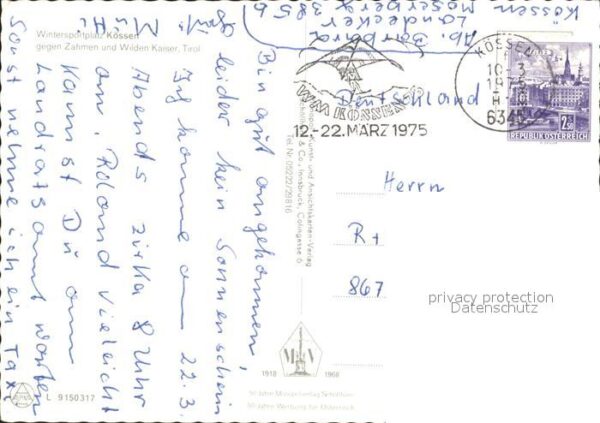 Wintersportplatz Kössen
gegen Zahmen und Wilden Kaiser, Tirol
Bin gut angekommen,
leider kein Sonnenschein
Ich komme am 22.3.
Abends zirka 8 Uhr
an. Roland vielleicht
kannst Du am
Landratsamt warten
Sonst nehme ich ein Tax
Mutti
Ab. Barbara
Landecker
Kössen Moserberg 385 b
KÖSSEN
6345
WM KÖSSEN
12.-22. MÄRZ 1975
REPUBLIK ÖSTERREICH
2.50
Deutschland
Herrn
R+
867
privacy protection
Datenschutz
Kunst- und Ansichtskarten-Verlag
& Co., Innsbruck, Colingasse 6
Tel. Nr. 05222/29816
M V
1918 1968
50 Jahre Werbung für Österreich
L 9150317